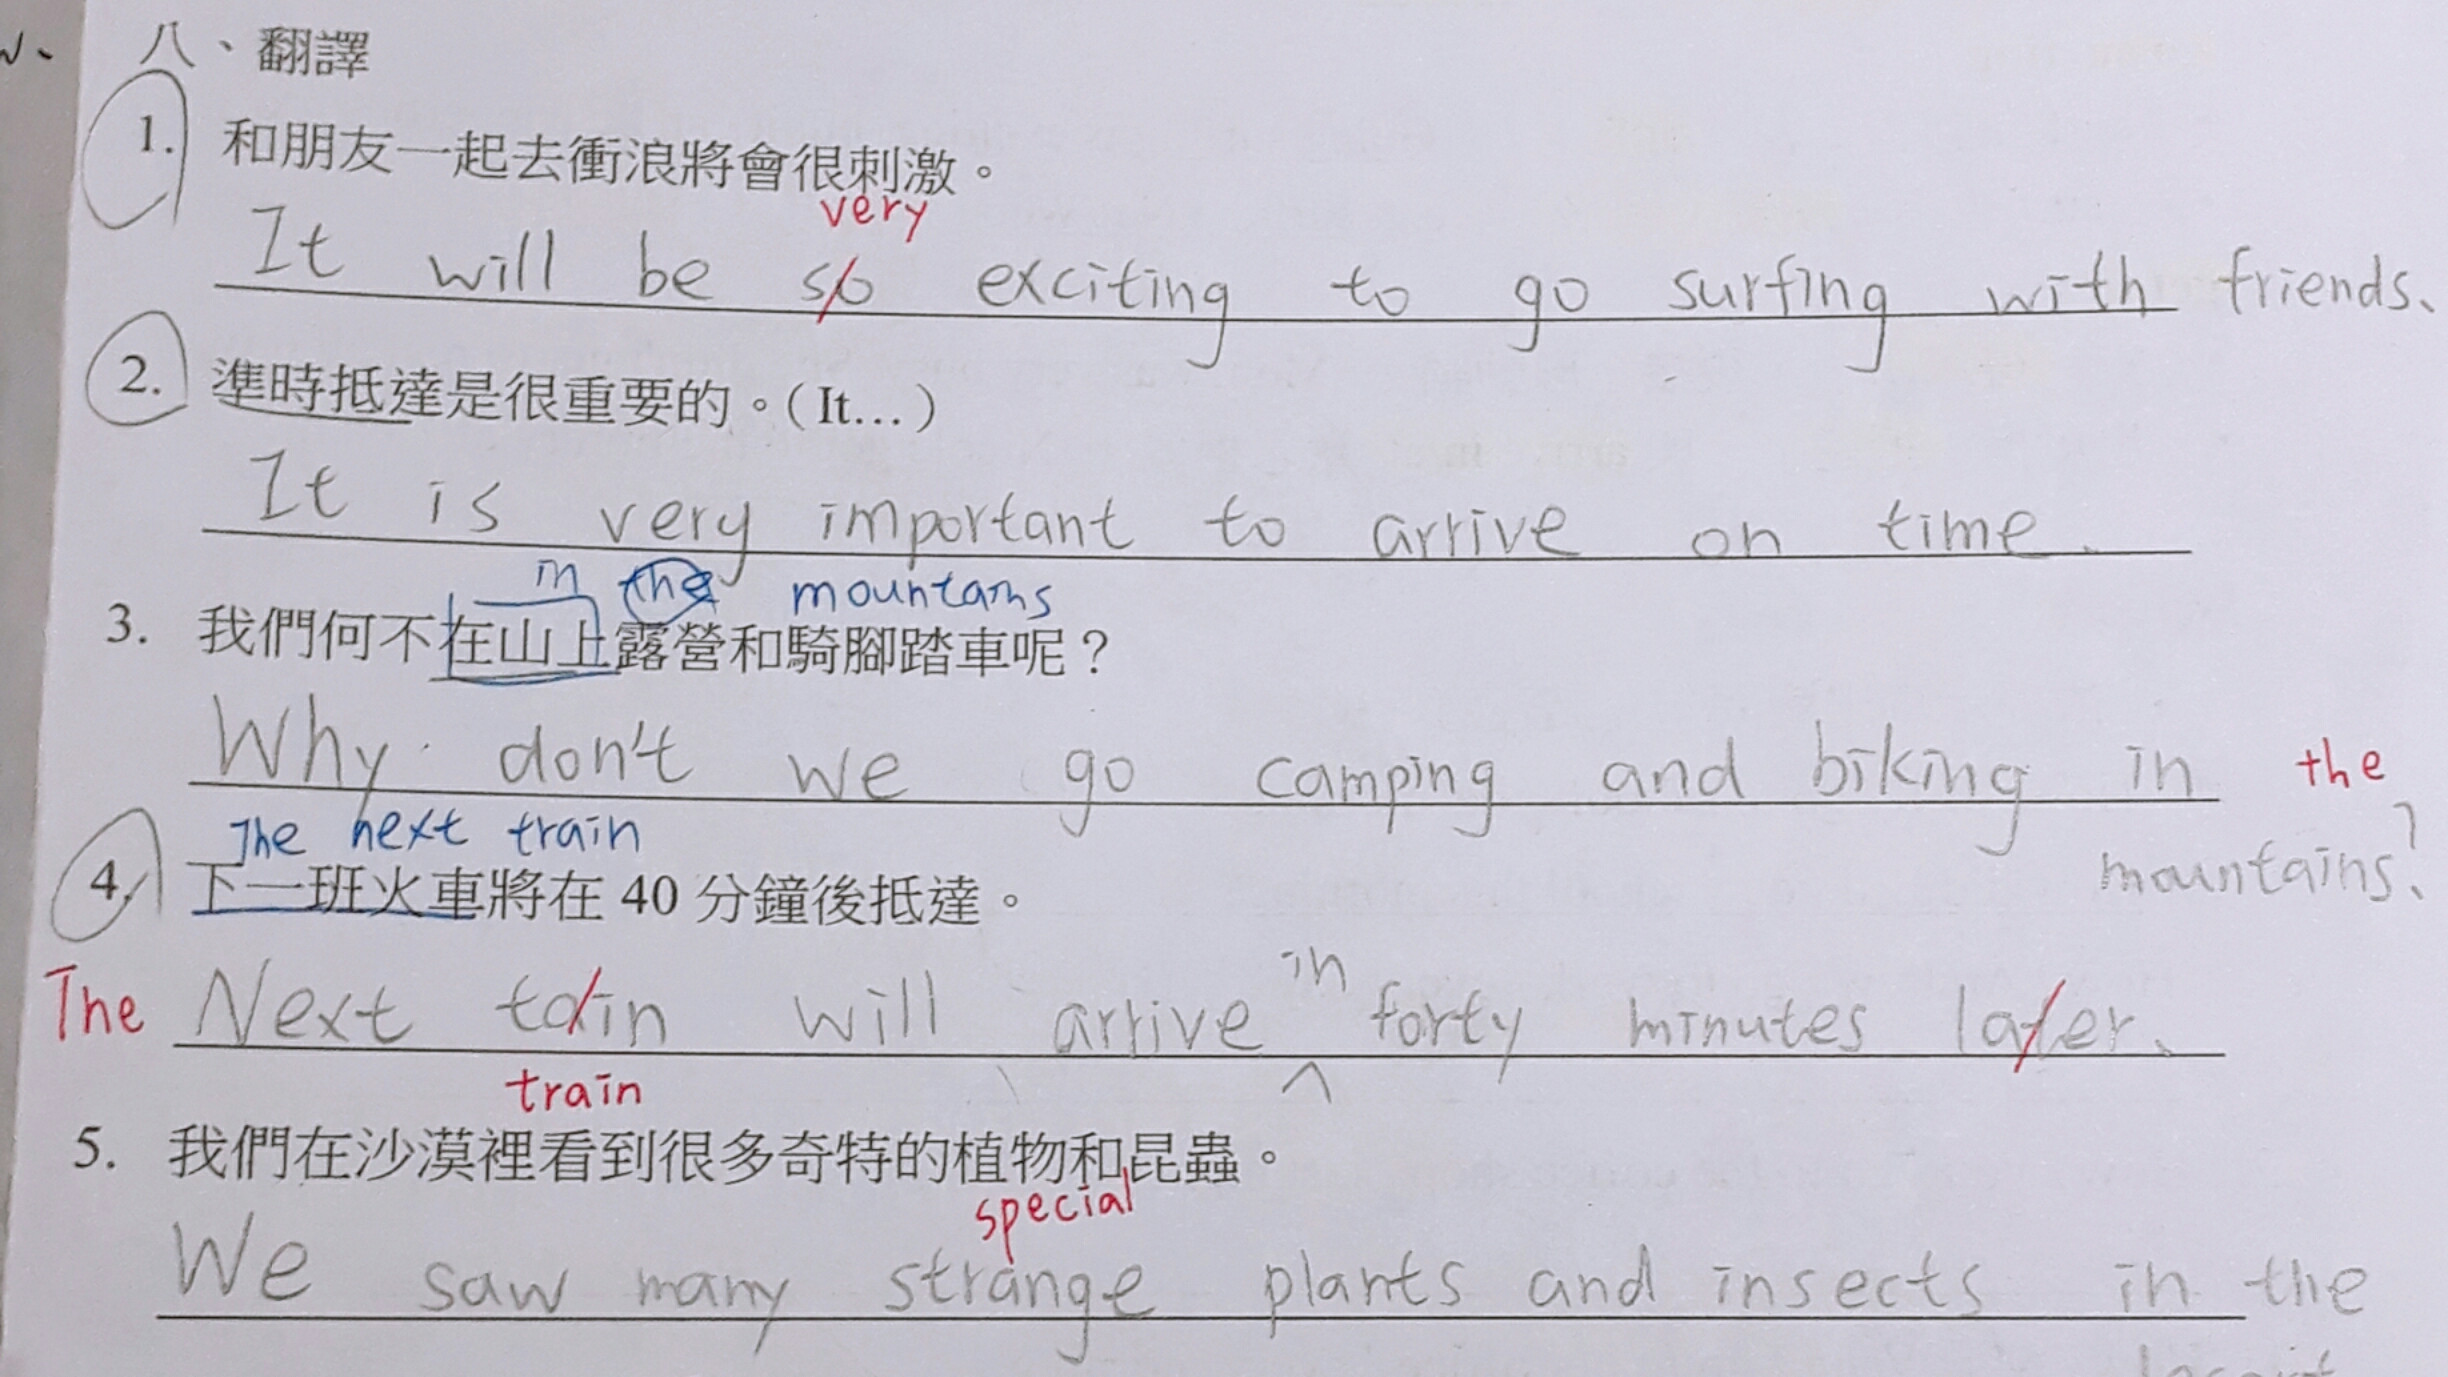 八、翻譯
1. 和朋友一起去衝浪將會很刺激。
very
It will be so exciting to go surfing with friends.
2. 準時抵達是很重要的。(It...)
It is very important to arrive on time.
in the mountains
3. 我們何不在山上露營和騎腳踏車呢？
Why don't we go camping and biking in the
mountains?
The next train
4. 下一班火車將在 40 分鐘後抵達。
in
The Next tain will arrive forty minutes later.
train
5. 我們在沙漠裡看到很多奇特的植物和昆蟲。
special
We saw many strange plants and insects in the